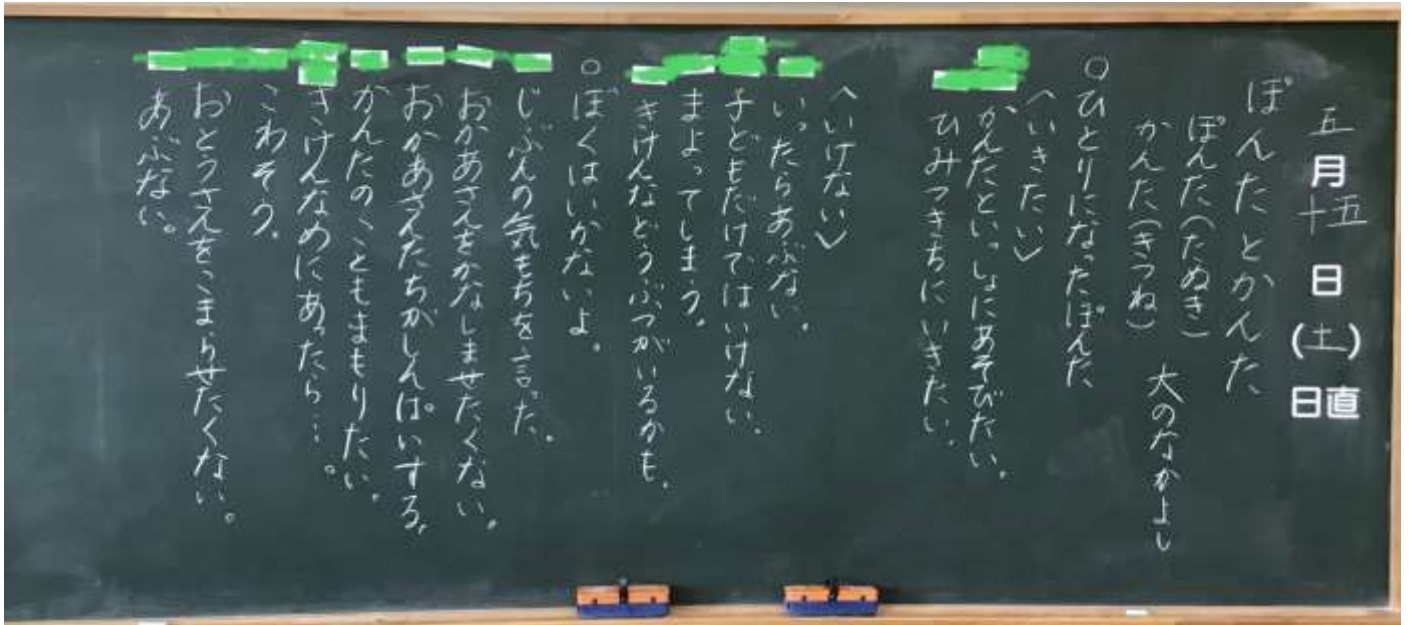 五月十五日(土)日直
ぽんたとかんた
ぽんた(たぬき)
かんた(きつね)
大のなかよし
○ひとりになったぽんた
〈いきたい〉
かんたといっしょにあそびたい。
ひみつきちにいきたい。
〈いけない〉
いったらあぶない。
子どもだけではいけない。
まよってしまう。
きけんなどうぶつがいるかも。
○ぼくはいかないよ。
じぶんの気もちを言った。
おかあさんをかなしませたくない。
おかあさんたちがしんぱいする。
かんたのこともまもりたい。
きけんなめにあったら…。
こわそう。
おとうさんをこまらせたくない。
あぶない。